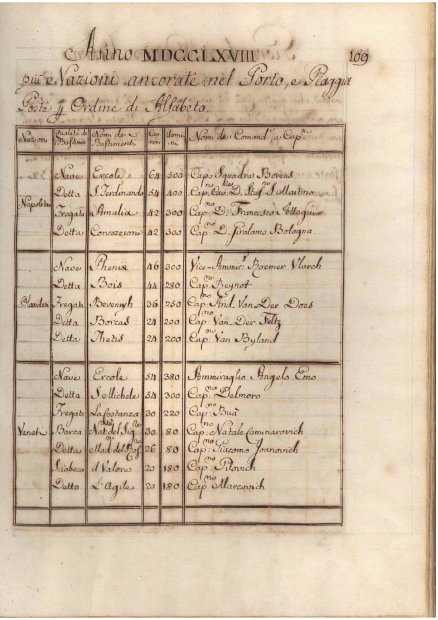 Anno MDCCLXVIII 109
più Nazioni ancorate nel Porto, e Piaggia
Poste p Ordine di Alfabeto
Nazioni Qualità de Bastimti Nomi de Bastimenti Cannoni Uomini Nomi de Comandti e Capni
Nave Ercole 64 500 Capno Squadro Boreas
Detta S. Ferdinando 54 400 Capno Cav. D. Martino
Napoletani
Fregata Amalia 42 300 Capno D. Francesco
Detta Concezione 42 300 Capno D. Girolamo Bologna
Nave 46 300 Vice-Ammir. Raemer Vlarch
Detta Bois 44 280 Capno Reynot
Olandesi Fregata Bevenwyh 36 250 Capno And. Van Der Does
Detta Boreas 24 200 Capno Van Der Feltz
Detta Thetis 24 200 Capno Van Byland
Nave Ercole 54 380 Ammiraglio Angelo Emo
Detta 54 300 Capno Delmoro
Fregata La Costanza 30 220 Capno Buà
Veneti Barca 30 80 Capno Natale Caminarovich
Detta 26 80 Capno Giacomo Joanovich
Sciabeco il Valore 20 180 Capno Pilovich
Detto L'Agile 20 180 Capno Marcovich